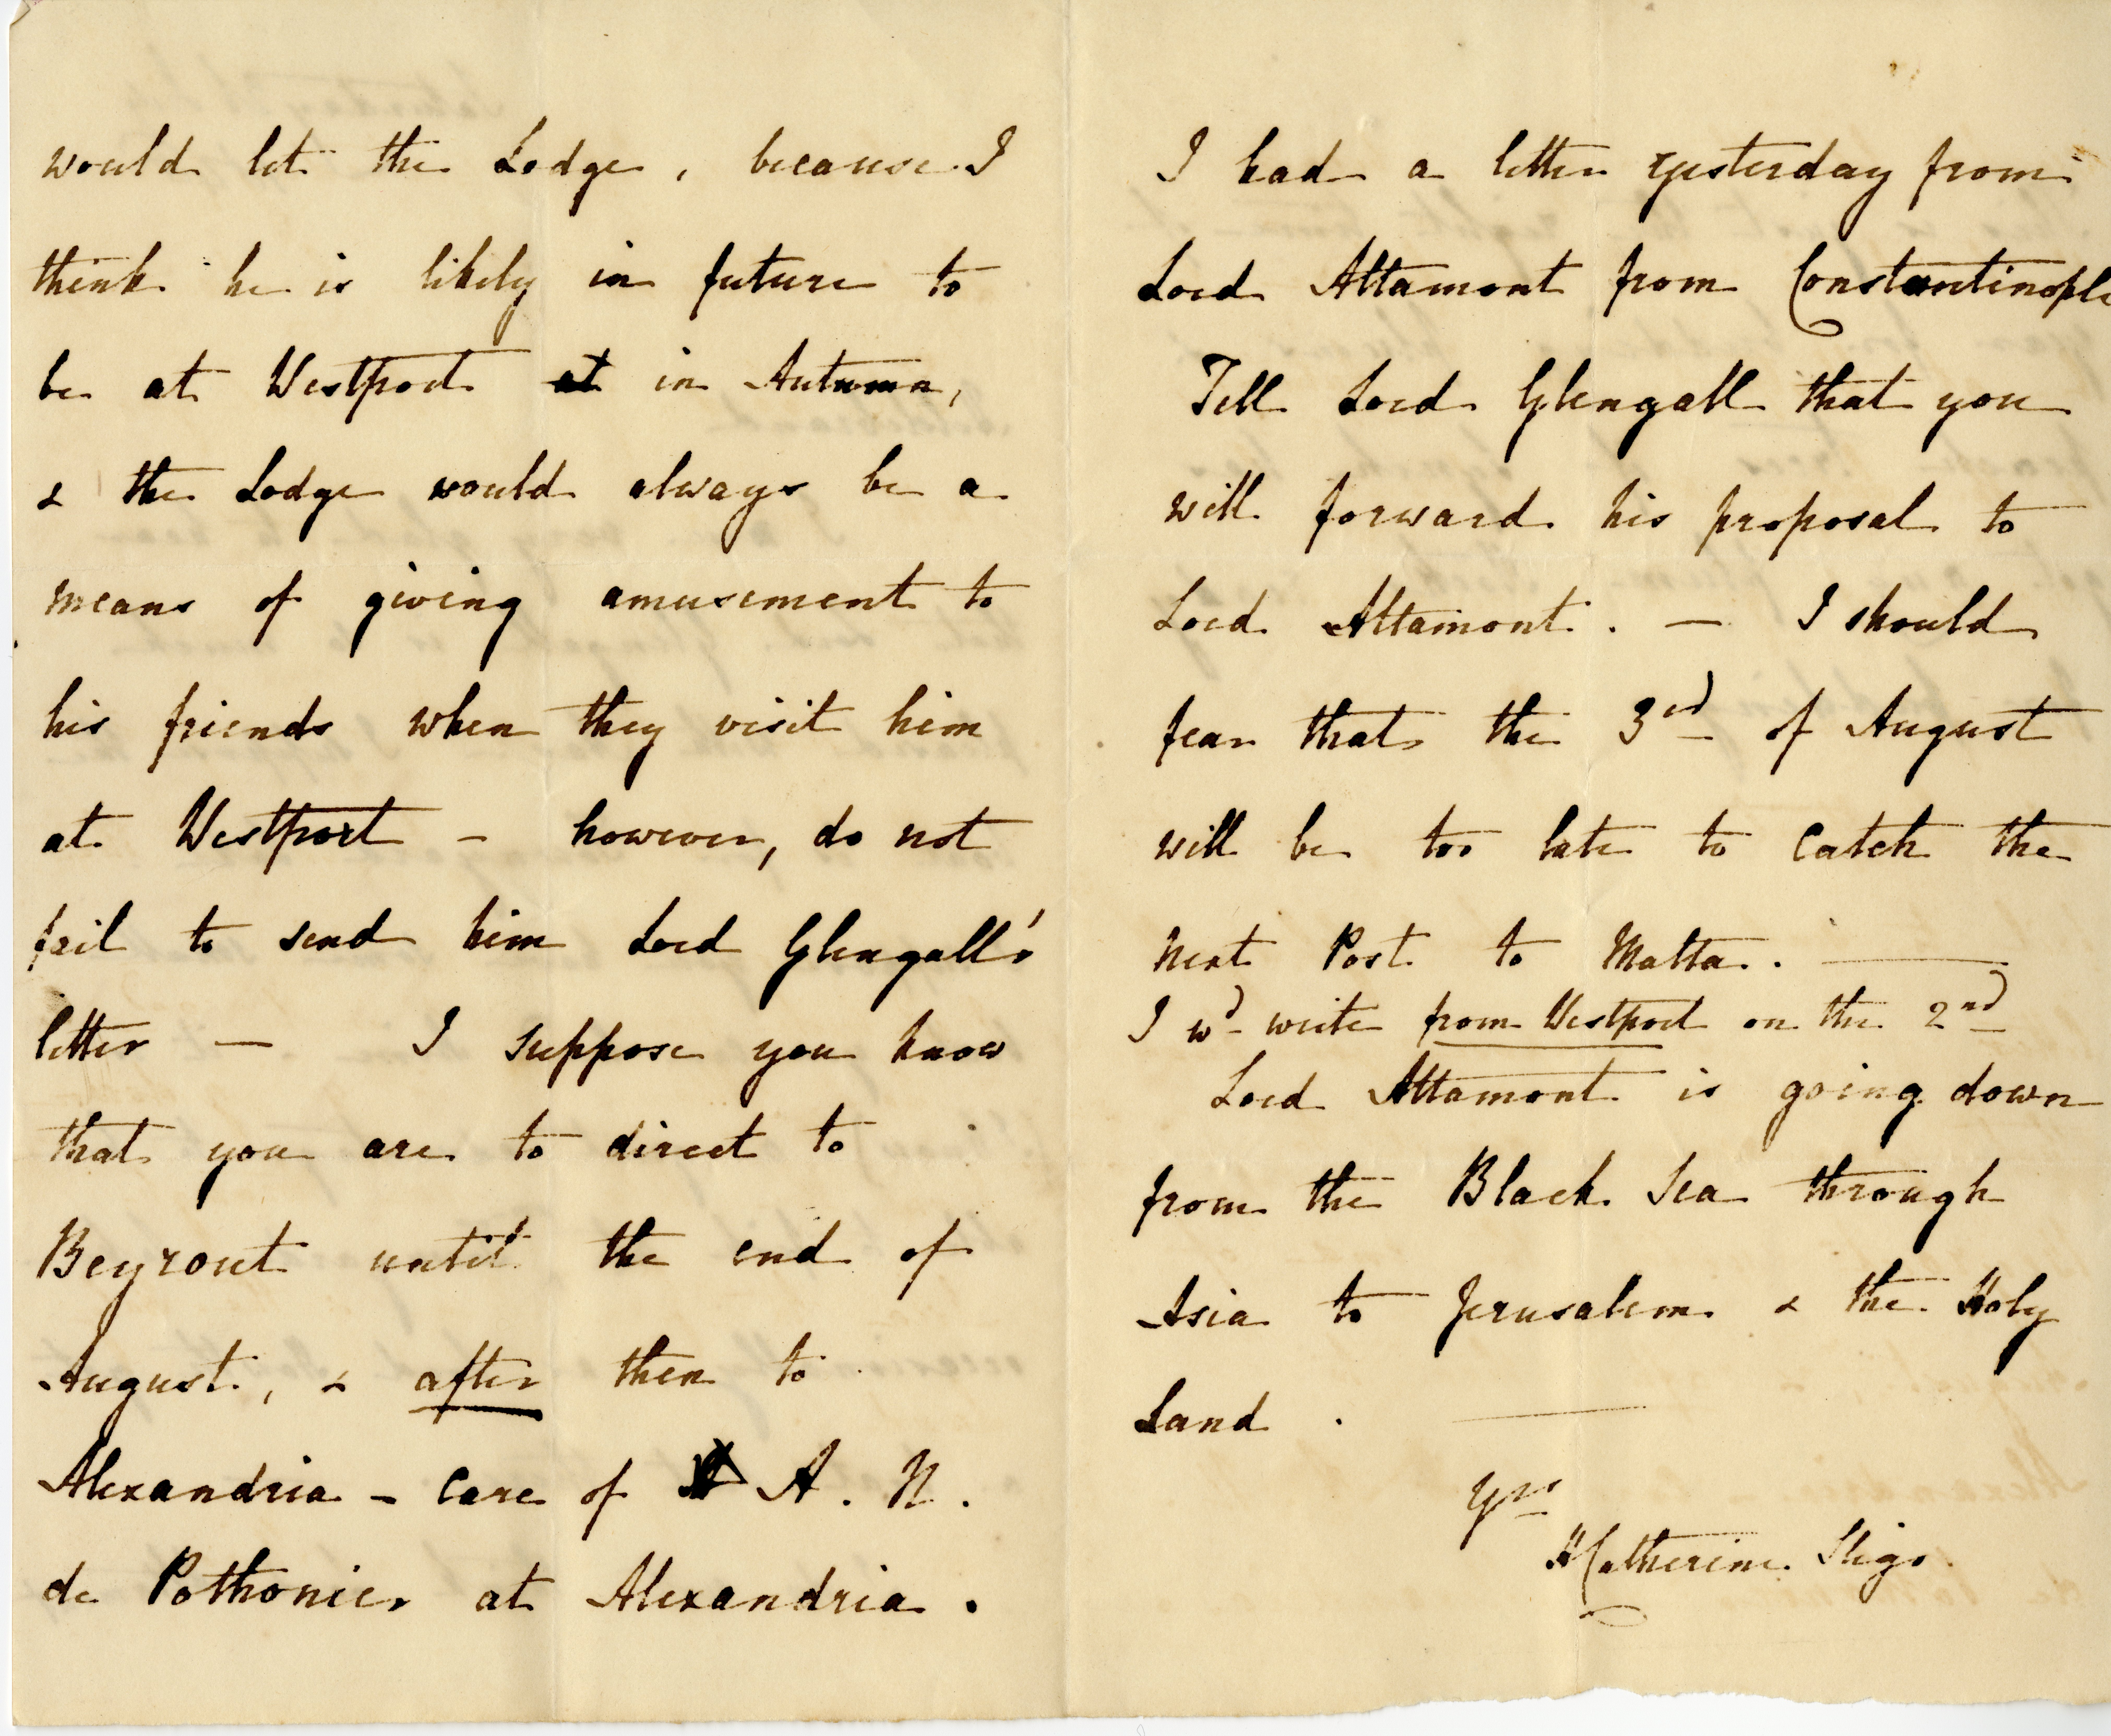 would let the Lodge, because I
think he is likely in future to
be at Westport at in Autumn,
& the Lodge would always be a
means of giving amusement to
his friends when they visit him
at Westport - however, do not
fail to send him Lord Glengall's
letter — I suppose you know
that you are to direct to
Beyrout until the end of
August, & after then to
Alexandria - Care of A. N.
de Pothonier at Alexandria.
I had a letter yesterday from
Lord Altamont from Constantinople
Tell Lord Glengall that you
will forward his proposal to
Lord Altamont. — I should
fear that the 3rd of August
will be too late to catch the
next Post to Malta. —
I wd write from Westport on the 2nd
Lord Altamont is going down
from the Black Sea through
Asia to Jerusalem & the Holy
Land. —
Yrs
HCatherine Sligo